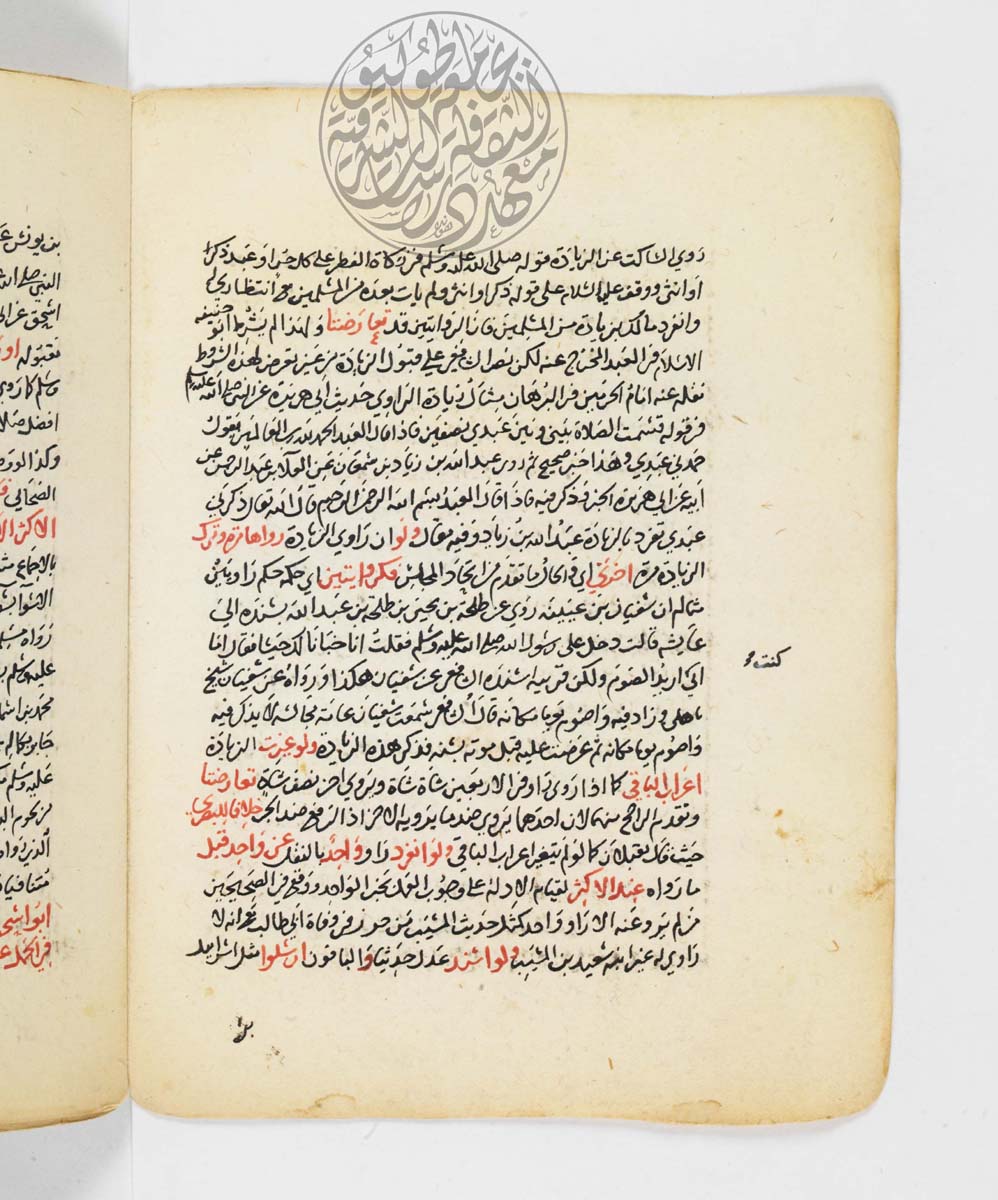 روي الساكت عن الزيادة قوله صلى الله عليه وسلم فرض زكاة الفطر على كل حر او عبد ذكر
او انثى ووقف عليه السلام على قوله ذكر او انثى ولم يات بعده من المسلمين مع انتظاري له
وانفرد مالك بزيادة من المسلمين فان الروايتين قد تعارضتا ولهذا لم يشرط ابو حنيفه
الاسلام في العبد المخرج عنه لكن نص الشافعي على قبول الزيادة من غير تعرض لهذه الشروط
نقله عنه امام الحرمين في البرهان مثال زيادة الراوي حديث ابي هريرة عن النبي صلى الله عليه وسلم
في قوله قسمت الصلاة بيني وبين عبدي نصفين فاذا قال العبد الحمد لله رب العالمين يقول
حمدني عبدي وهذا خبر صحيح ثم روى عبد الله بن زياد بن سمعان عن العلاء بن عبد الرحمن عن
ابيه عن ابي هريرة الخبر فذكر فيه فاذا قال العبد بسم الله الرحمن الرحيم قال الله تعالى ذكرني
عبدي تفرد بالزيادة عبد الله بن زياد وفيه مقال ولو ان راوي الزيادة رواها مرة وترك
الزيادة مرة اخرى اي والحال ما تقدم من اتحاد المجلس فكراويتين اي حكمه حكم راويين
مثاله ان سفيان بن عيينة روي عن طلحة بن يحيى بن طلحة بن عبد الله بسنده الى
عايشه قالت دخل علي رسول الله صلى الله عليه وسلم فقلت انا خبانا لك حيسا فقال اما
اني اريد الصوم ولكن قربيه اسنده الشافعي عن سفيان هكذا ورواه عن سفيان شيخ
باهلي وزاد فيه واصوم يوما مكانه قال الشافعي سمعت سفيان عامة مجالسه لا يذكر فيه
واصوم يوما مكانه ثم عرضته عليه قبل موته بسنه فذكر هذه الزيادة ولو غيرت الزيادة
اعراب الباقي كما اذا روى راو في الاربعين شاة شاة ويروي اخر نصف شاة تعارضتا
ويقدم الراجح منهما لان احدهما يروي ضد ما يرويه الاخر اذ الرفع ضد الجر خلافا للبصري
حيث قال يقبلان كما لو لم يتغير اعراب الباقي ولو انفرد راو واحد بالنقل عن واحد قبل
ما رواه عند الاكثر لقيام الادلة على وجوب العمل بخبر الواحد ووقع في الصحيحين
من لم يرو عنه الا راو واحد كمثل حديث المسيب بن حزن في وفاة ابي طالب مع انه لا
راوي له غير ابنه سعيد بن المسيب ولو اسند عدل حديثا والباقون ارسلوا مثل اسرايل
كنت
بن